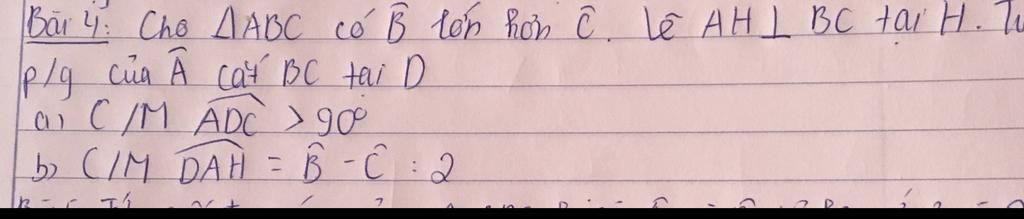 Bài 4: Cho ΔABC có B̂ lớn hơn Ĉ. Vẽ AH⊥ BC tại H.
p/g của Â cắt BC tại D
a) C/M ADC > 90°
b) C/M DAH = B̂ - Ĉ : 2